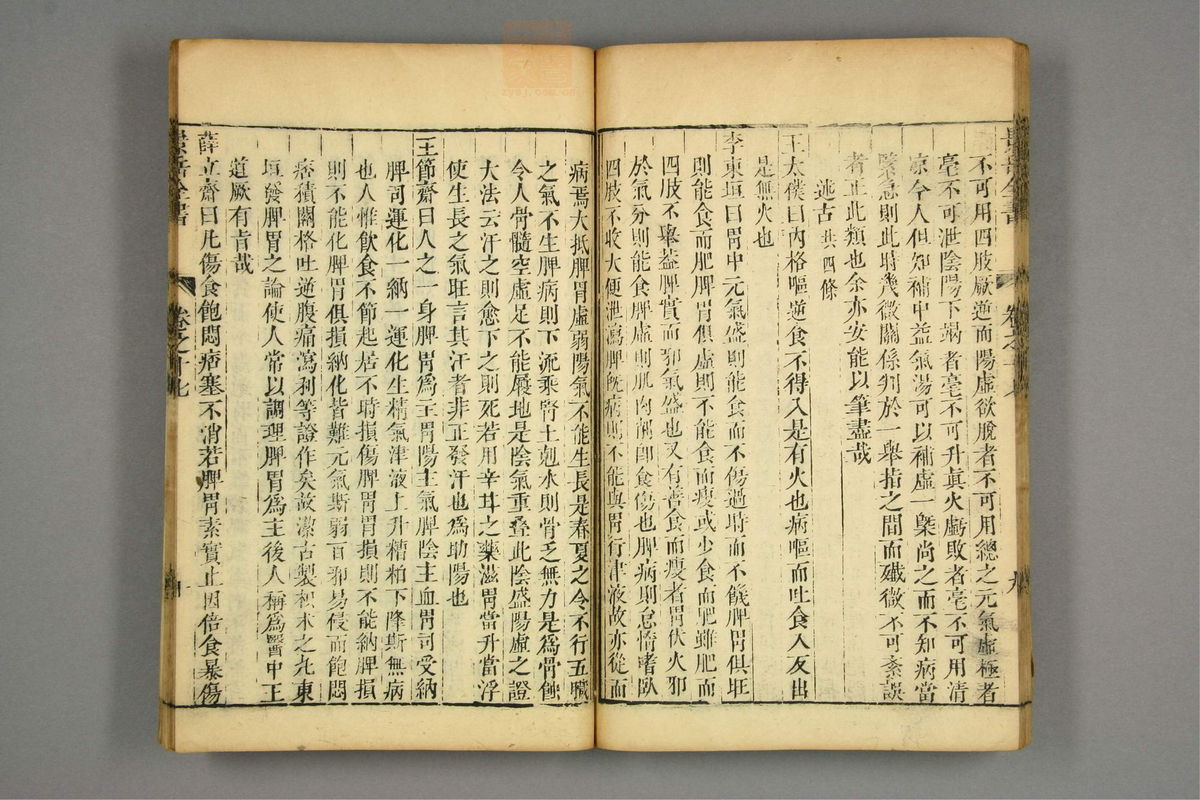 不可用四肢厥逆而陽虛欲脫者不可用總之元氣虛極者
毫不可泄陰陽下竭者毫不可升真火虧敗者毫不可用清
涼今人但知補中益氣湯可以補虛一槩尚之而不知病當
緊急則此時幾微關係判於一舉指之間而纖微不可紊誤
者正此類也余亦安能以筆盡哉
述古共四條
王太僕曰內格嘔逆食不得入是有火也病嘔而吐食入反出
是無火也
李東垣曰胃中元氣盛則能食而不傷過時而不飢脾胃俱旺
則能食而肥脾胃俱虛則不能食而瘦或少食而肥雖肥而
四肢不舉葢脾實而邪氣盛也又有善食而瘦者胃伏火邪
於氣分則能食脾虛則肌肉削即食㑊也脾病則怠惰嗜臥
四肢不收大便泄瀉脾既病則不能與胃行津液故亦從而
病焉大抵脾胃虛弱陽氣不能生長是春夏之令不行五臟
之氣不生脾病則下流乘腎土剋水則骨乏無力是為骨蝕
令人骨髓空虛足不能履地是陰氣重疊此陰盛陽虛之證
大法云汗之則愈下之則死若用辛甘之藥滋胃當升當浮
使生長之氣旺言其汗者非正發汗也為助陽也
王節齋曰人之一身脾胃為主胃陽主氣脾陰主血胃司受納
脾司運化一納一運化生精氣津液上升糟粕下降斯無病
也人惟飲食不節起居不時損傷脾胃胃損則不能納脾損
則不能化脾胃俱損納化皆難元氣斯弱百邪易侵而飽悶
痞積關格吐逆腹痛瀉利等證作矣故潔古製枳朮之丸東
垣發脾胃之論使人常以調理脾胃為主後人稱為醫中王
道厥有旨哉
薛立齋曰凡傷食飽悶痞塞不消若脾胃素實止因倍食暴傷
景岳全書
卷之十七